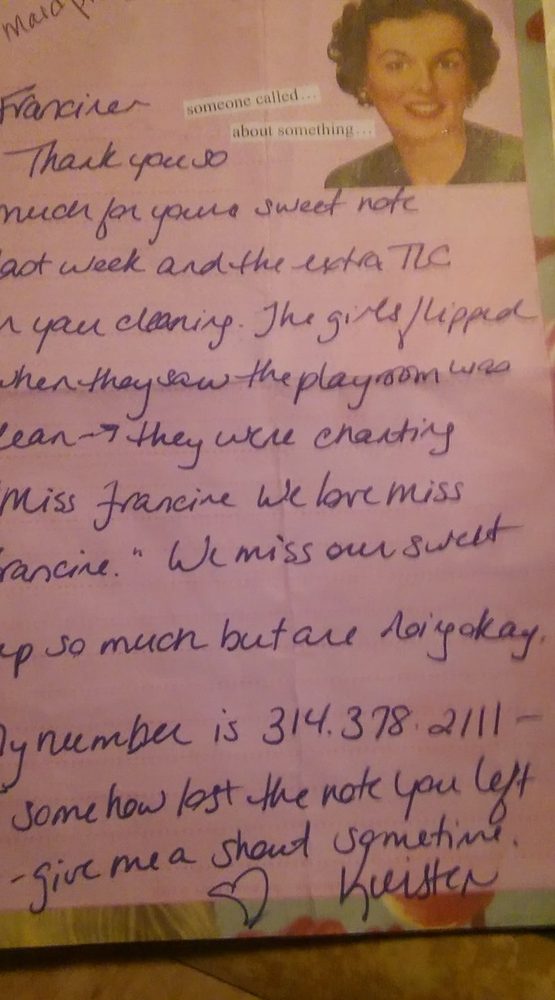 Francine
someone called...
about something...
Thank you so
much for your sweet note
last week and the extra TLC
n your cleaning. The girls flipped
when they saw the playroom was
lean → they were chanting
"Miss Francine We love miss
rancine." We miss our sweet
up so much but are doing okay.
My number is 314.378.2111 -
somehow lost the note you left
- give me a shout sometime.
♡ Kristen